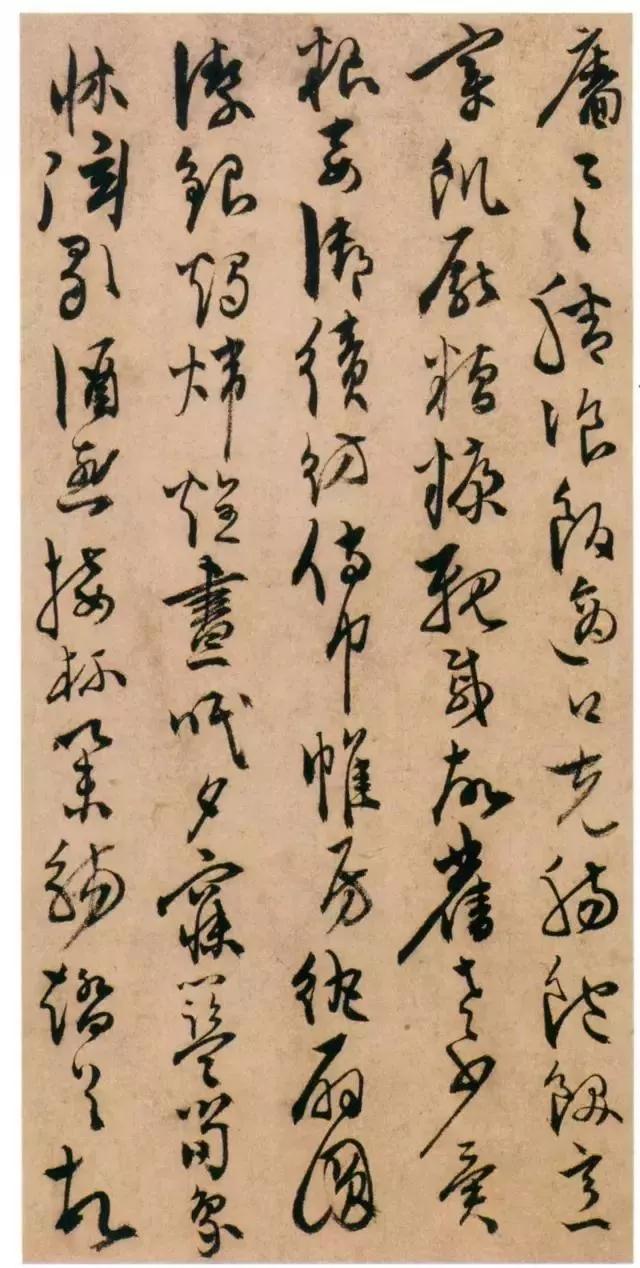 牆具膳飡飯適口充腸飽飫烹
宰飢厭糟糠親戚故舊老少異
粮妾御績紡侍巾帷房紈扇圓
潔銀燭煒煌晝眠夕寐藍笋象
牀弦歌酒讌接杯舉觴矯手頓